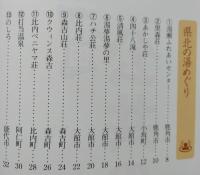 県北の湯めぐり
①湯瀬ふれあいセンター 鹿角市・8
鹿角市・10
③あかしや荘 小坂町・12
④四十八滝 大館市 14
⑤清風荘 大館市 16
⑥湯夢湯夢の里 大館市 18
⑦ハチ公荘 大館市 20
⑧比内荘 22
⑨森吉山荘 森吉町 24
⑩クウィンス森吉 森吉町 26
⑪比内ベニヤマ荘 比内町 28
⑫打当温泉 阿仁町 30
⑬のしろ 能代市 32